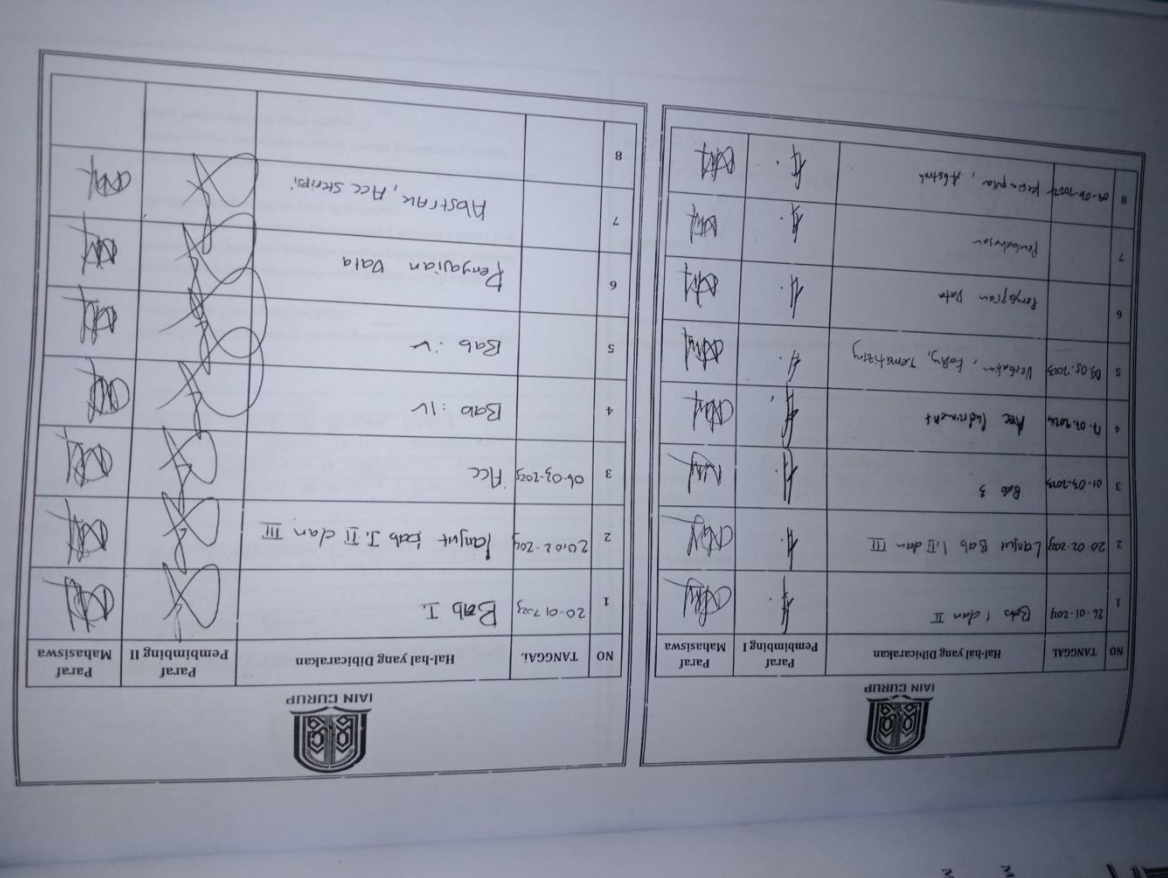 IAIN CURUP
NO TANGGAL Hal-hal yang Dibicarakan Paraf Pembimbing I Paraf Mahasiswa
1 Bab I dan II
2 20-02-2023 Lanjut Bab I, II dan III
3 01-03-2023 Bab 3
4 Acc
5 03.05.2023
6 Penyajian Data
7 Pembahasan
8 Abstrak
IAIN CURUP
NO TANGGAL Hal-hal yang Dibicarakan Paraf Pembimbing II Paraf Mahasiswa
1 20-01-2023 Bab I.
2 20.02-2023 lanjut bab I. II dan III
3 06-03-2023 Acc
4 Bab : IV
5 Bab : V
6 Penyajian Data
7 Abstrak, Acc Skripsi
8